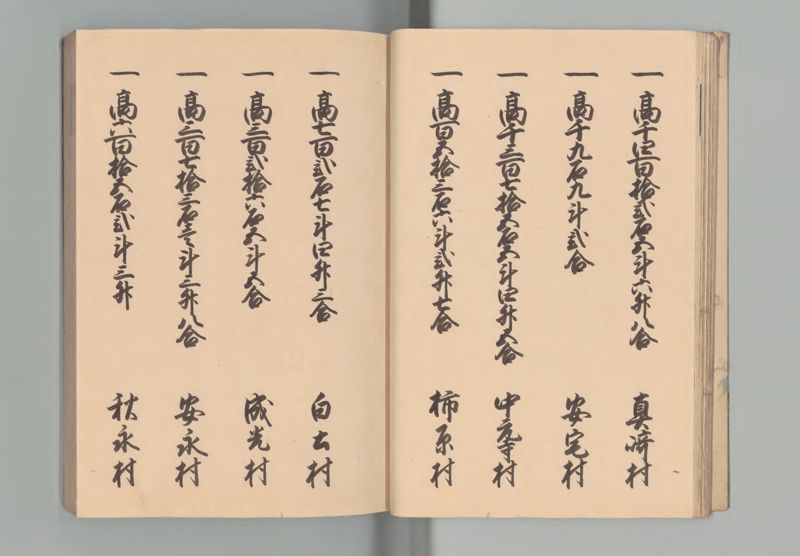 一 高千四百拾弐石五斗六升八合 真崎村
一 高千九石九斗弐合 安宅村
一 高千三百七拾五石五斗四升五合 中元寺村
一 高百五拾三石六斗弐升七合 柿原村
一 高七百弐石七斗四升三合 白土村
一 高三百弐拾六石五斗五合 成光村
一 高三百七拾三石壱斗三升八合 安永村
一 高六百拾五石弐斗三升 秋永村